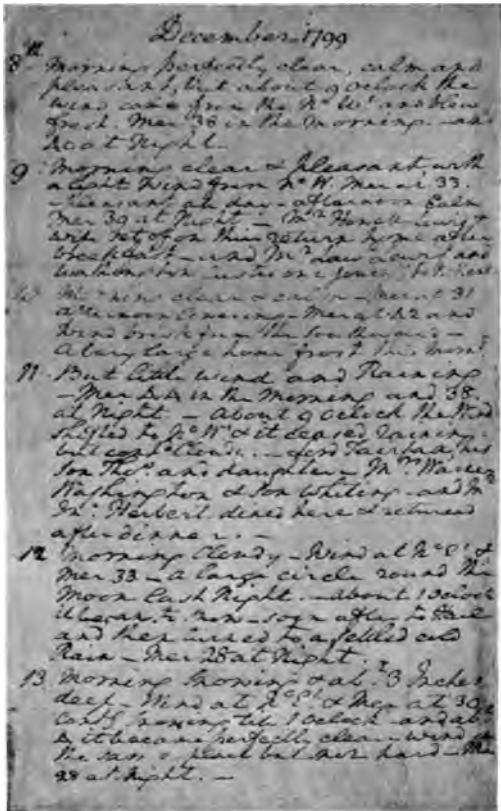 December 1799
8 Morning perfectly clear, calm and
pleasant, but about 9 oclock the
wind came from the No. Wt. and blew
fresh. Mer 38 in the morning - and
40 at Night.
9 Morning clear & pleasant with
a light Wind from No. W. Mer at 33.
Pleasant all day - afternoon Calm
Mer 39 at Night - Mr. Howell Lewis &
wife set off on their return home after
breakfast - and Mr. Law. Lewis and
Washington on a journey to N. Kent
Morning clear & calm - Mer at 31
afternoon lowering - Mer at 42 and
wind brisk from the Southward -
A very large hoar frost this morng
11 But little wind and Raining
- Mer 44 in the Morning and 38
at Night - About 9 oclock the Wind
shifted to No. Wt. & it ceased raining
but contd Cloudy. - Lord Fairfax, his
Son Thos. and daughter - Mrs. Warner
Washington & son Whiting - and Mr.
Jno. Herbert dined here & returned
after dinner. -
12 Morning Cloudy - Wind at No. Et. &
Mer 33 - A large circle round the
Moon last Night. - about 1 oclock
it began to snow - soon after to Hail
and then turned to a settled cold
Rain - Mer 28 at Night.
13 Morning Snowing & abt. 3 Inches
deep - Wind at No. Et. & Mer at 30
contg Snowing till 1 oclock - and abt
4 it became perfectly clear - wind in
the same place but not hard - Mer
28 at Night. -